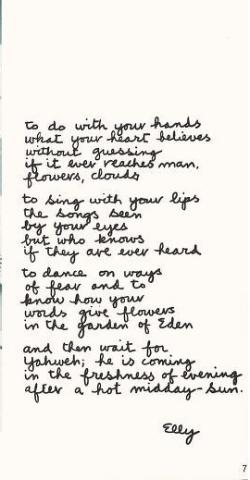 to do with your hands
what your heart believes
without guessing
if it ever reaches man,
flowers, clouds
to sing with your lips
the songs seen
by your eyes
but who knows
if they are ever heard
to dance on ways
of fear and to
know how your
words give flowers
in the garden of Eden
and then wait for
Yahweh; he is coming
in the freshness of evening
after a hot midday-sun.
Elly
7